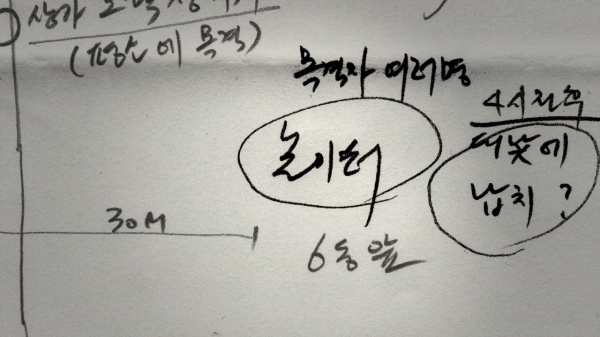 상가
(평상시에 목격)
목격자 여러명
놀이터
4시전후
대낮에
납치?
30M
6동앞